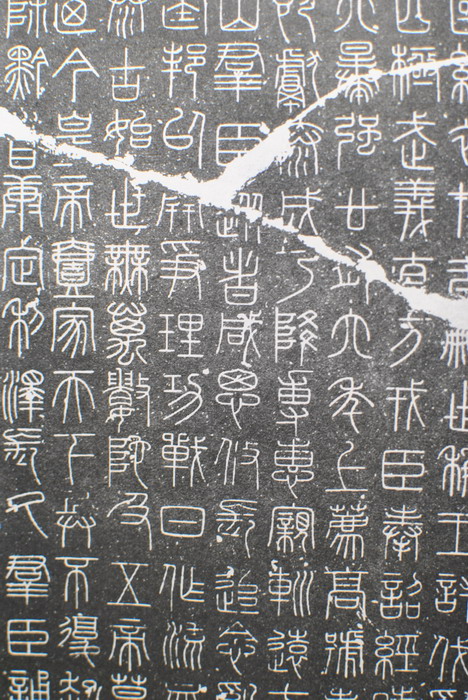 國維初在昔嗣世稱王討伐
四極武義直方戎臣奉詔經
六暴強廿有六年上薦高號
獻泰成乃降專惠親巡遠方
山群臣從者咸思攸長追念亂
建邦以開爭理功戰日作流血
泰古始世無萬數阤及五帝莫
迺今皇帝壹家天下兵不復起
除黔首康定利澤長久群臣誦